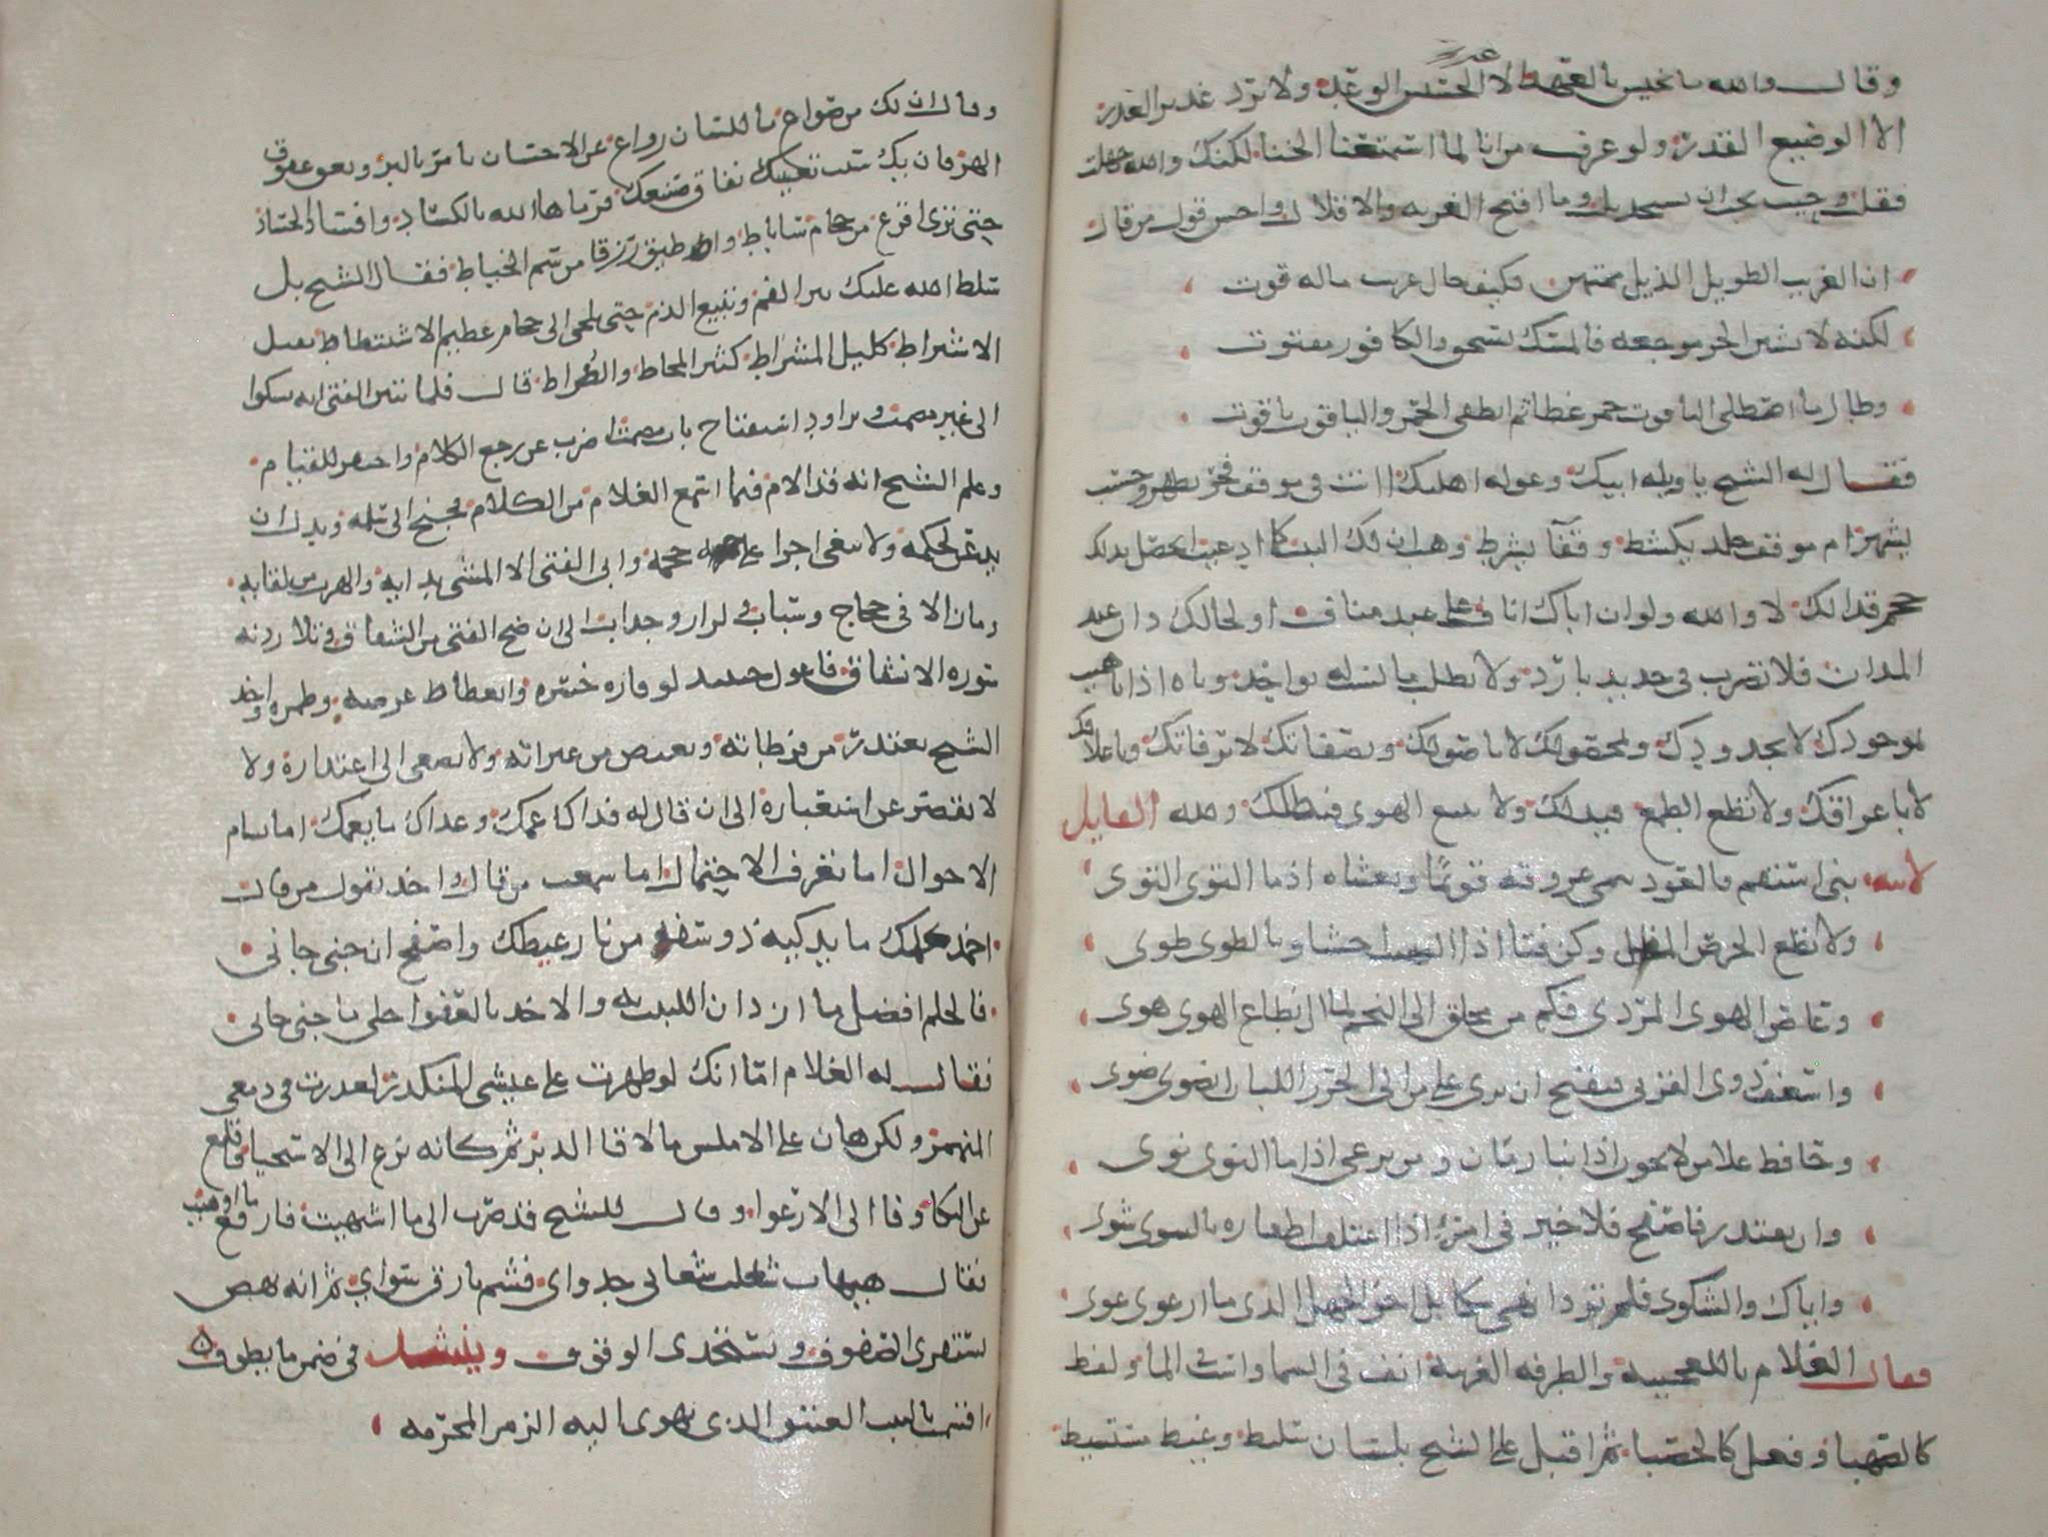 وقال والله ما يخيس بالعهد الا الخسيس الوغد ولا يرد غدير الغدر
الا الوضيع القدر ولو عرفت من انا لما اسمعتنا الخنا لكنك والله جهلت
فقلت وحيث يجب ان تسجد بلت وما اقبح الغربه والاقلال واحسن قول من قال
ان الغريب الطويل الذيل ممتهن فكيف حال غريب ماله قوت
لكنه لا تشين الحر موجعه فالمسك يسحق والكافور مفتوت
وطال ما اصطلى الياقوت جمر غضا ثم انطفى الجمر والياقوت ياقوت
فقال له الشيخ يا ويله ابيك وعوله اهليك اانت في موقف فخر يظهر وحسب
يشهر ام موقف جلد يكشط وقفا يشرط وهب ان لك البيت كما ادعيت ايحصل بذلك
حجم قذالك لا والله ولو ان اباك اناف على عبد مناف او لخالك دان عبد
المدان فلا تضرب في حديد بارد ولا تطلب ما لست له بواجد وباه اذا باهيت
بموجودك لا بجدودك وبمحصولك لا باصولك وبصفاتك لا برفاتك وباعلاقك
لا باعراقك ولا تطع الطمع فيذلك ولا تتبع الهوى فيضلك ولله القايل
لابنه بني استقم فالعود تنمي عروقه قويما ويغشاه اذا ما التوى التوى
ولا تطع الحرص المذل وكن فتا اذا التهبت احشاوه بالطوى طوى
وعاص الهوى المردي فكم من محلق الى النجم لما ان اطاع الهوى هوى
واسعف ذوي القربى فيقبح ان يرى على من الى الحر اللباب انضوى ضوى
وحافظ على من لا يخون اذا نبا زمان ومن يرعى اذا ما النوى نوى
وان تقتدر فاصفح فلا خير في امرئ اذا اعتلقت اظفاره بالشوى شوى
واياك والشكوى فلم تر ذا نهى شكا بل اخو الجهل الذي ما ارعوى عوى
فقال الغلام يا للعجيبه والطرفه الغريبه انف في السما واست في الما ولفظ
كالصهبا وفعل كالحصبا ثم اقبل على الشيخ بلسان سليط وغيظ مستشيط
وقال اف لك من صواغ باللسان رواغ عن الاحسان تامر بالبر وتعق عقوق
الهر فان يك سبب تعنتك نفاق صنعتك فرماها الله بالكساد وافساد الحساد
حتى ترى افرغ من حجام ساباط واضيق رزقا من سم الخياط فقال الشيخ بل
سلط الله عليك بثر الفم وتبيغ الدم حتى تلجى الى حجام عظيم الاشتطاط ثقيل
الاشتراط كليل المشراط كثير المخاط والضراط قال فلما تبين الفتى انه يشكوا
الى غير مصمت ويراود استفتاح باب مصمت اضرب عن رجع الكلام واحتفز للقيام
وعلم الشيخ انه قد الام فيما اسمع الغلام من الكلام فجنح الى سلمه وبذل ان
يذعن لحكمه ولا يبغي اجرا على حجمه وابى الفتى الا المشي بدايه والهرب من لقايه
وما زالا في حجاج وسباب ولزاز وجذاب الى ان ضج الفتى من الشقاق وتلا ردنه
سوره الانشقاق فاعول حينيذ لوفاره خسره وانعطاط عرضه وطمره واخذ
الشيخ يعتذر من فرطاته ويغيض من عبراته ولا يصغي الى اعتذاره ولا
لا يقصر عن استعباره الى ان قال له فداك عمك وعداك ما يغمك اما تسام
الاعوال اما تعرف الاحتمال اما سمعت من قال واخذ بقول من قال
اخمد بحلمك ما يذكيه ذو سفه من نار غيظك واصفح ان جنى جاني
فالحلم افضل ما ازدان اللبيب به والاخذ بالعفو احلى ما جنى جاني
فقال له الغلام اما انك لو ظهرت على عيشي المنكدر لعذرت في دمعي
المنهمر ولكن هان على الاملس ما لاقا الدبر ثم كانه نزع الى الاستحيا فاقلع
عن البكا وفا الى الارعوا وقال للشيخ قد صرت الى ما اشتهيت فارقع ما اوهيت
فقال هيهات شغلت شعابي جدواي فشم بارق سواي ثم انه نهض
يستقري الصفوف ويستجدي الوقوف وينشد في ضمن ما يطوف
اقسمت بالبيت العتيق الذي تهوي اليه الزمر المحرمه